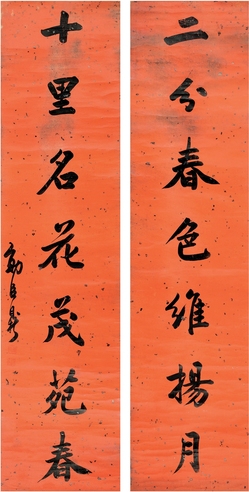 二分春色維揚月
十里名花茂苑春